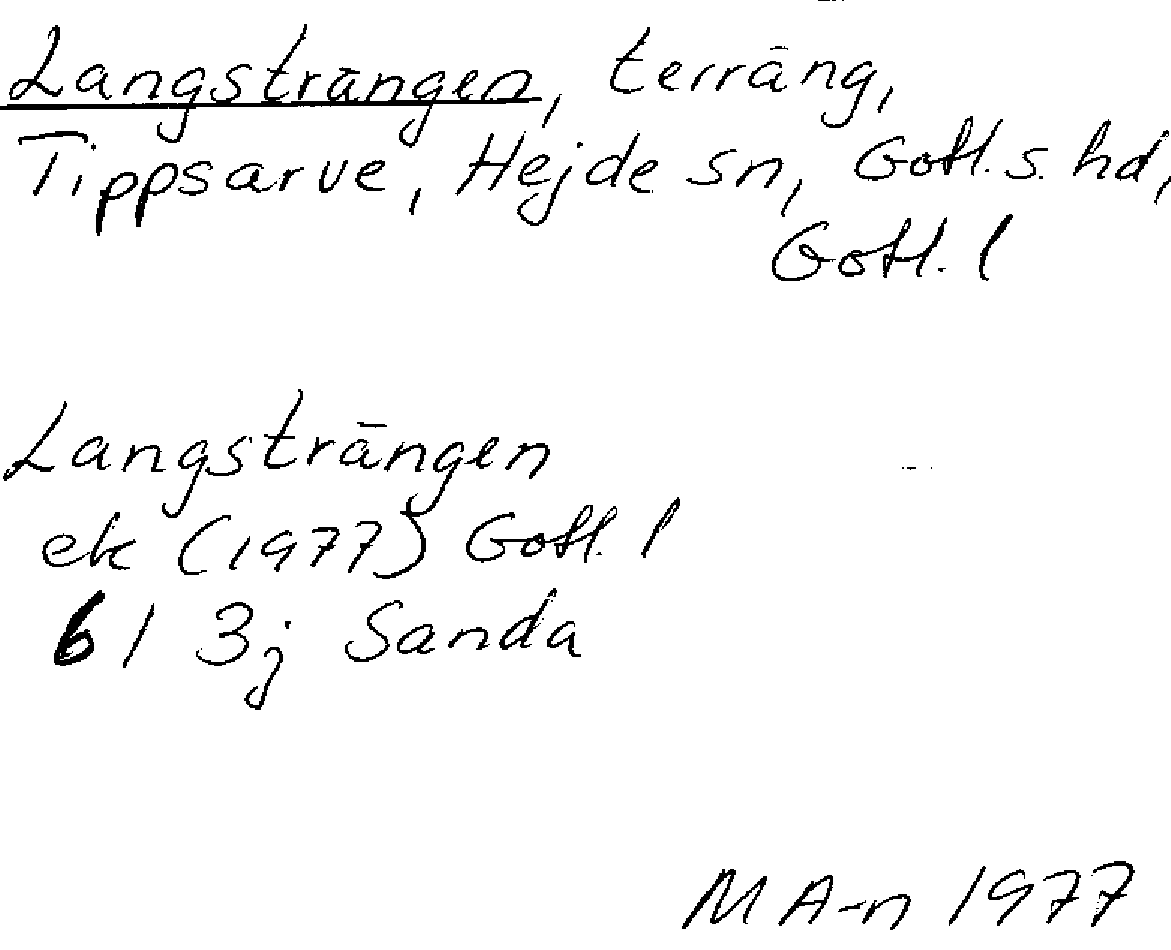 Langsträngen, terräng,
Tippsarve, Hejde sn, Gotl. s. hd,
Gotl. l
Langsträngen
ek (1977) Gotl. l
6 I 3j Sanda
MA-n 1977